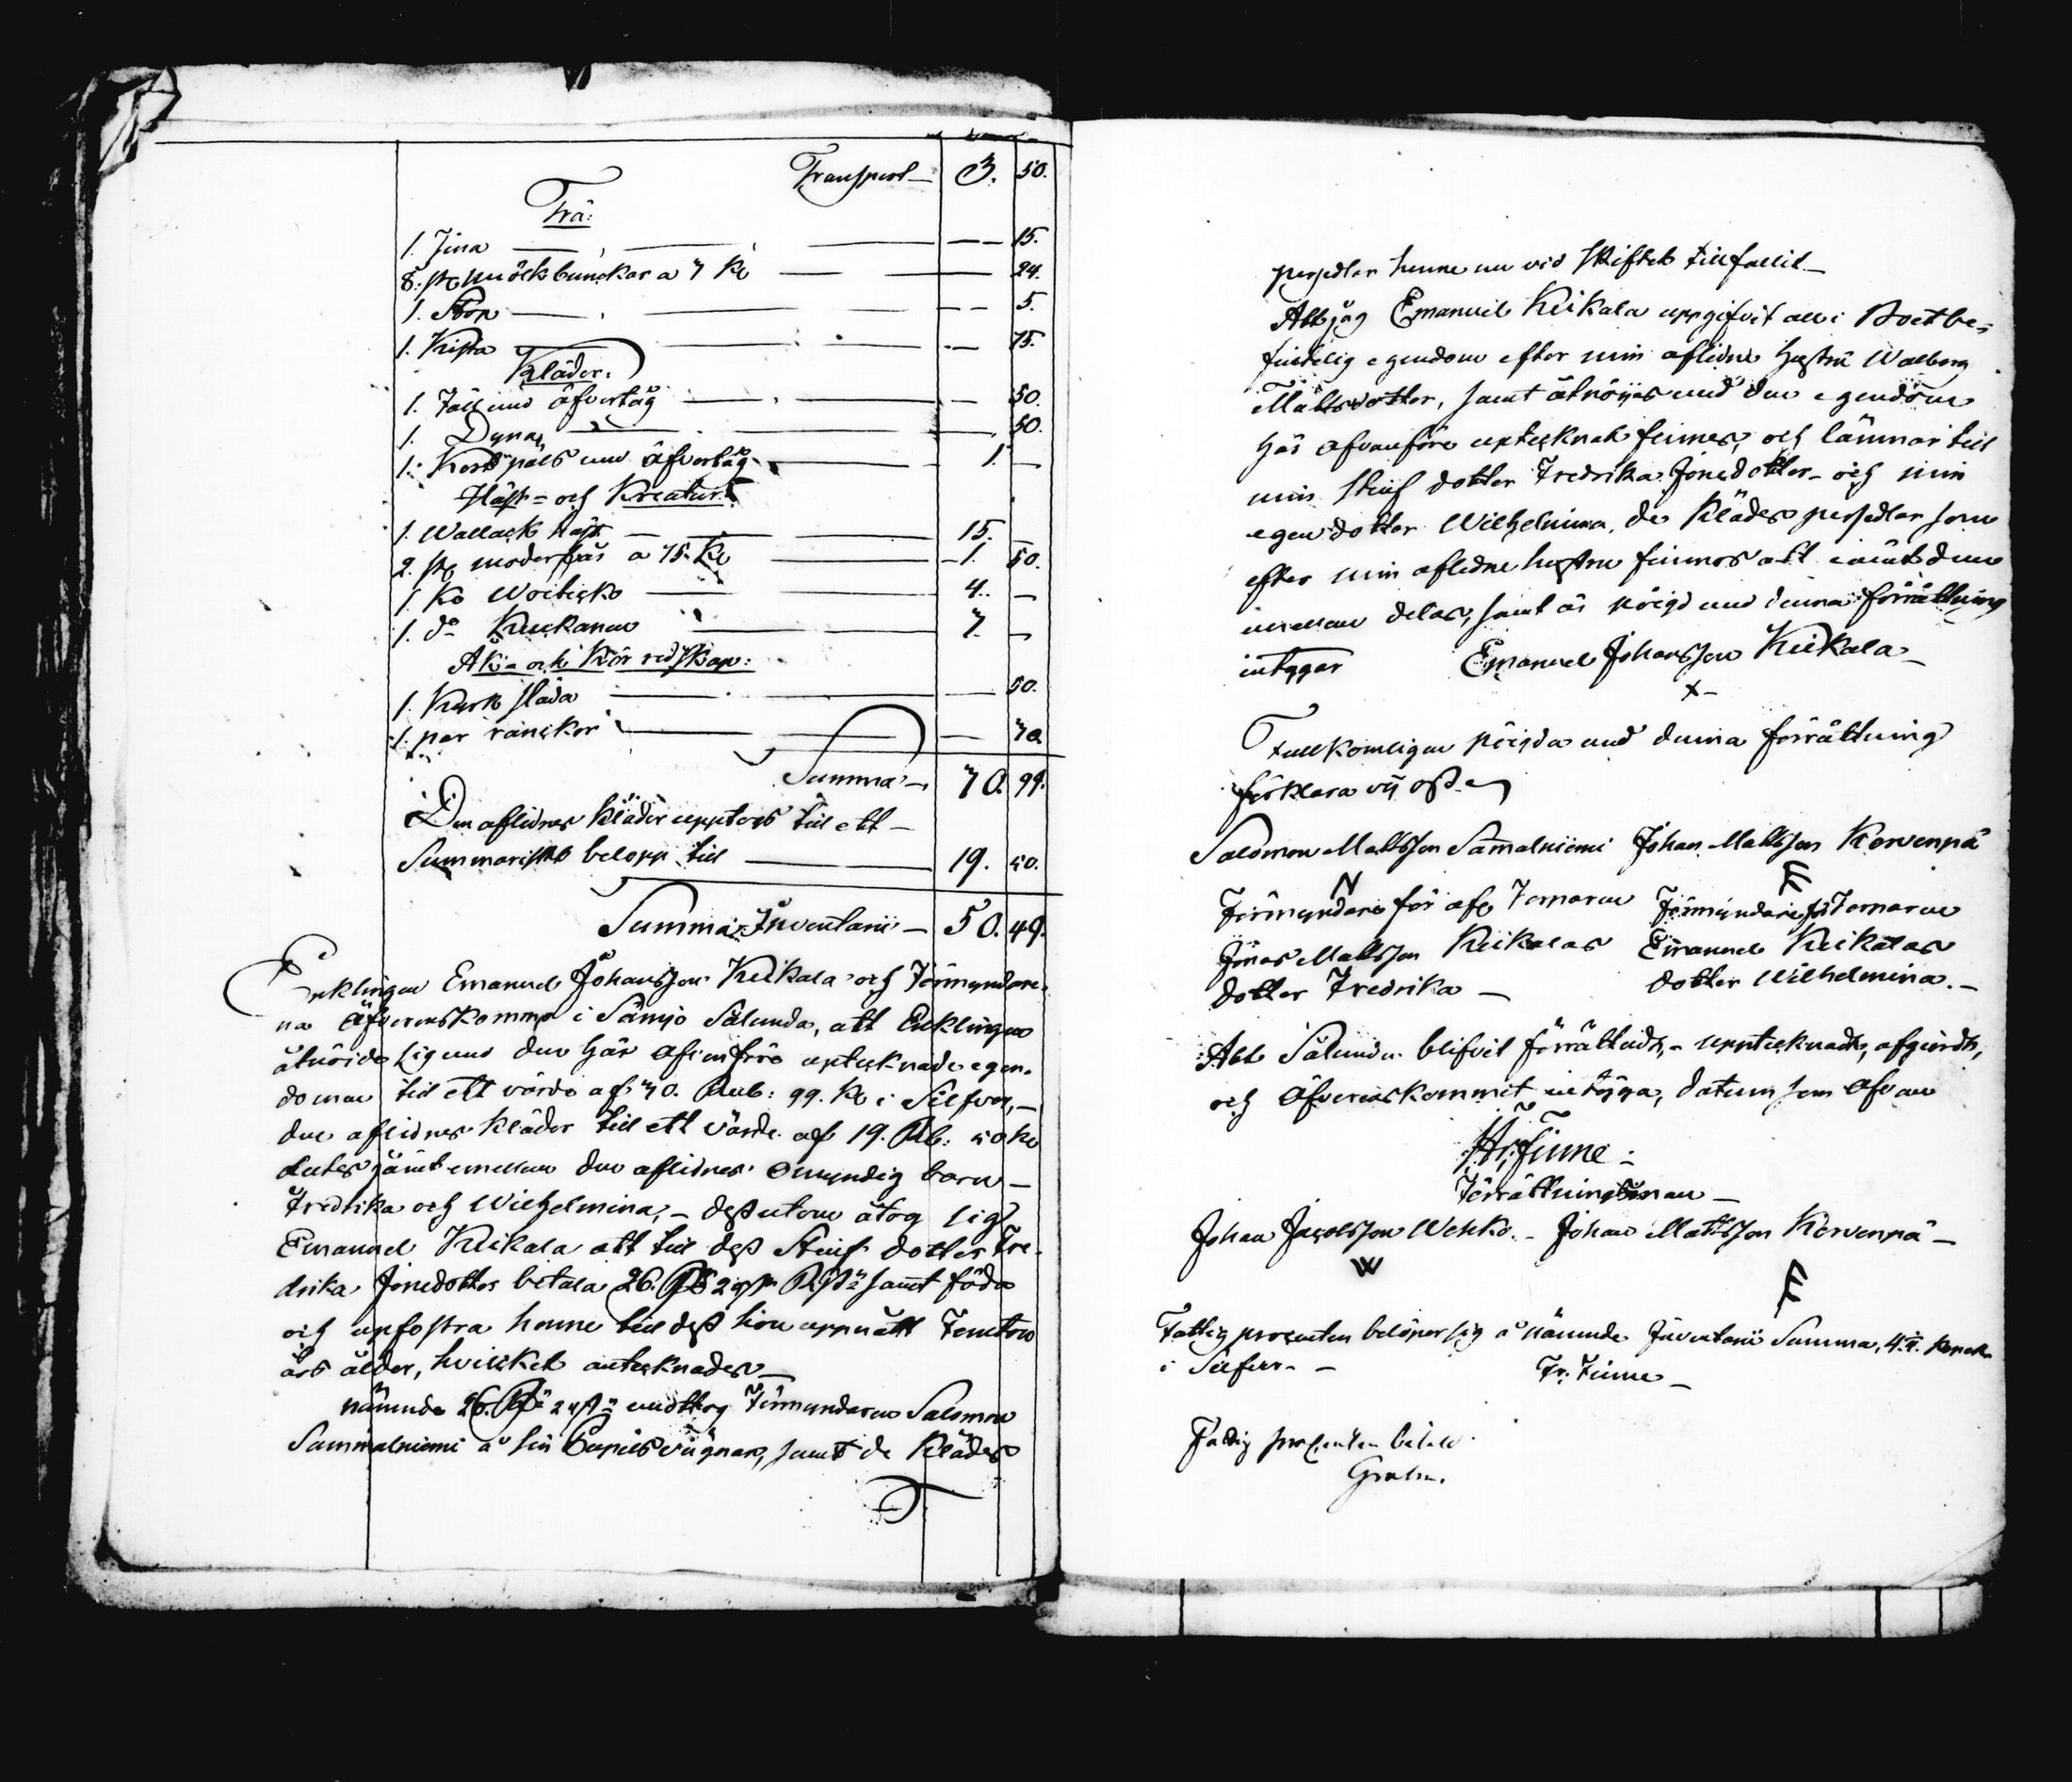 Transport — 3. 50.
Trä:
1. Jina — 15.
8. st mölkbunckar a 3 Ko — 24.
1. Stop — 5.
1. Kista — 75.
Kläder.
1. Fäll med åfvertåg — 50.
1. Dyna — 50.
1. Kort päls med åfvertåg — 1. —
Häst- och Kreatur.
1. Wallack häst — 15. —
2. st moderfår a 75. Ko — 1. 50.
1 Ko Woiticko — 4. —
1. do — 3. —
Åk- och Kör redskap:
1. Kyrk släda — 50.
1. par ränckor — 30.
Summa — 30. 99.
Den aflidnes kläder upptogs till ett —
Summariskt belopp till — 19. 50.
Summa Inventarii — 50. 49.
Encklingen Emanuel Johansson Keikala och Förmyndare-
na åfverenskommo i Sämjo Sålunda, att Encklingen
åtnöide sig med den här ofvanföre uptecknade egen-
domen till ett värde af 30. Rub: 99. Ko i Silfver, —
den aflidnes kläder till ett värde af 19. Rub: 50 Ko
deltes jämt emellan den aflidnes omyndig barn —
Fredrika och Wilhelmina, — dessutom åtog sig
Emanuel Keikala att till dess Steuf dotter Fre-
drika Jonedotter betala 26. samt föda
och upfostra henne till dess hon uppnått Femton
års ålder, hvilcket antecknades —
nämnde 26. emottog Förmyndaren Salomon
Sammalniemi å sin Pupills vägnar, samt de Kläder
persedlar henne nu vid Skiftet tillfallit —
Att jag Emanuel Keikala uppgifvit all i Boet be-
fintelig egendom efter min aflidne hustru Walborg
Mattsdotter, samt åtnöijes med den egendom
här ofvanföre uptecknat finnes, och lämnar till
min Steuf dotter Fredrika Jonedotter — och min
egen dotter Wilhelmina, de Kläder persedlar som
efter min aflidne hustru finnes att jämt dem
emellan delas, samt är nöigd med denna förrättning
intygar Emanuel Johansson Keikala —
x —
Fullkomligen nöigda med denna förrättning
förklara vij oss —
Salomon Mattsson Sammalniemi Johan Mattsson Korvenpä
N
Förmyndare för afl Torparen Förmyndare för Torparen
Jonas Mattsson Keikalas Emanuel Keikalas
dotter Fredrika — dotter Wilhelmina. —
Att Sålunda blifvit förrättadt, — upptecknadt, afgiordt,
och åfverenskommit intyga, datum som ofvan
Finne —
Förrättningsman —
Johan Jacobsson Wehko. — Johan Mattsson Korvenpä —
W
Fattig procenten belöper sig å nämnde Inventarii Summa, Kopek
i Silfver — — Fr: Finne —
Fattig procenten betald